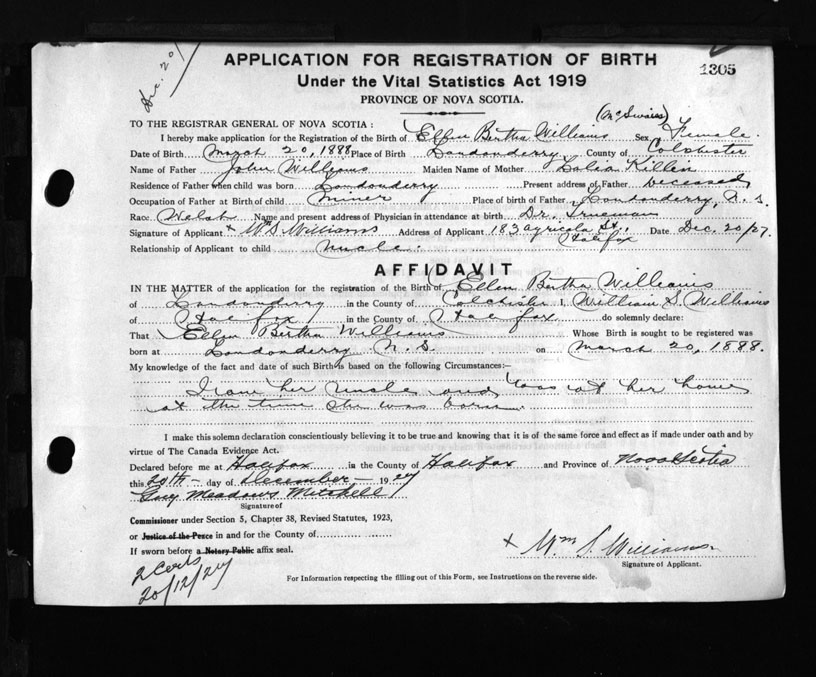 Dec. 20/
APPLICATION FOR REGISTRATION OF BIRTH
1305
Under the Vital Statistics Act 1919
PROVINCE OF NOVA SCOTIA.
TO THE REGISTRAR GENERAL OF NOVA SCOTIA :
I hereby make application for the Registration of the Birth of Ellen Bertha Williams Sex Female.
Date of Birth March 20, 1888 Place of Birth Londonderry County of Colchester
Name of Father John Williams Maiden Name of Mother Killen
Residence of Father when child was born Londonderry Present address of Father Deceased
Occupation of Father at Birth of child Miner Place of birth of Father Londonderry, N. S.
Race Welsh Name and present address of Physician in attendance at birth Dr.
Signature of Applicant x Wm S. Williams Address of Applicant 183 Agricola St., Halifax Date Dec. 20/27.
Relationship of Applicant to child Uncle.
AFFIDAVIT
IN THE MATTER of the application for the registration of the Birth of Ellen Bertha Williams
of Londonderry in the County of Colchester I, William S. Williams
of Halifax in the County of Halifax do solemnly declare:
That Ellen Bertha Williams Whose Birth is sought to be registered was
born at Londonderry N. S. on March 20, 1888.
My knowledge of the fact and date of such Birth is based on the following Circumstances:—
I am her Uncle and was at her home
at the time she was born.
I make this solemn declaration conscientiously believing it to be true and knowing that it is of the same force and effect as if made under oath and by
virtue of The Canada Evidence Act.
Declared before me at Halifax in the County of Halifax and Province of Nova Scotia
this 20th - day of December - 1927
Guy Meadows Mitchell
Signature of
Commissioner under Section 5, Chapter 38, Revised Statutes, 1923,
or Justice of the Peace in and for the County of
If sworn before a Notary Public affix seal.
x Wm S. Williams
Signature of Applicant.
2 Certs
20/12/27
For Information respecting the filling out of this Form, see Instructions on the reverse side.